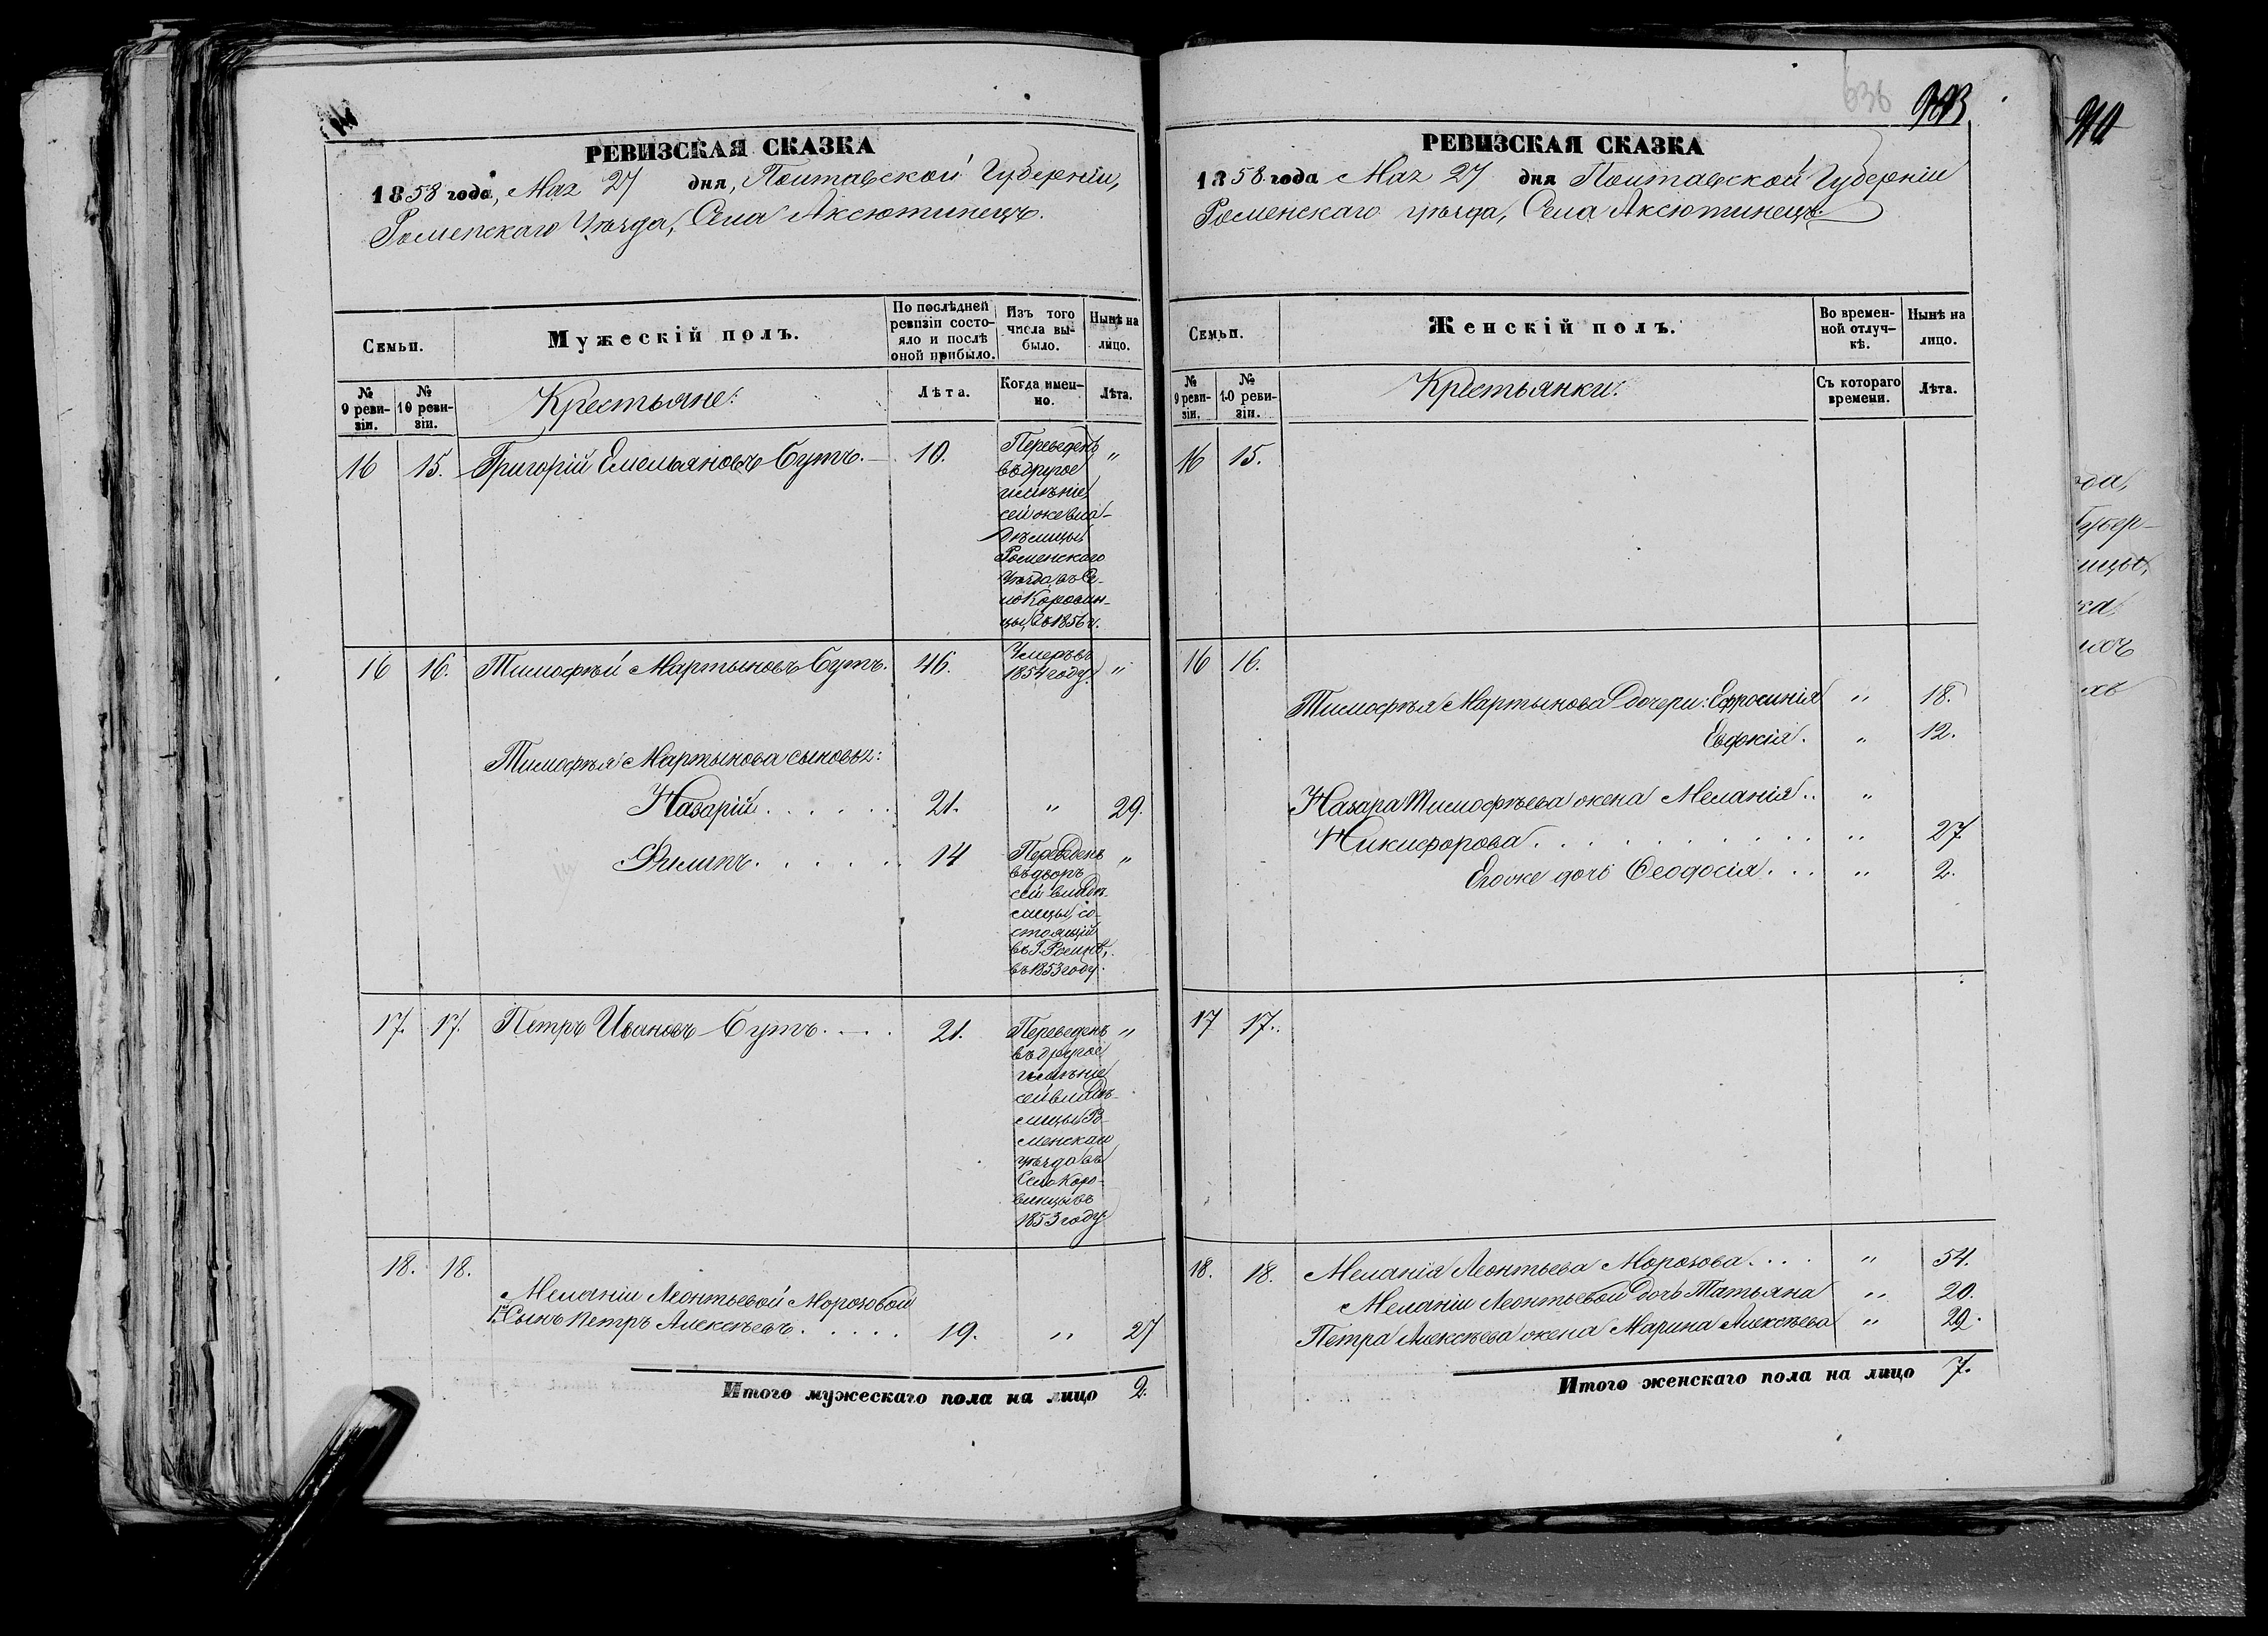 РЕВИЗСКАЯ СКАЗКА
1858 года, Мая 27 дня, Полтавской Губерніи,
Роменскаго Уѣзда, Села Аксютинецъ.
Семьи.
Мужескій полъ.
По послѣдней
ревизіи состо-
яло и послѣ
оной прибыло.
Изъ того
числа вы-
было.
Нынѣ на
лицо.
№
9 реви-
зіи.
№
10 реви-
зіи.
Крестьяне:
Лѣта.
Когда имен-
но.
Лѣта.
16 15. Григорій Емельяновъ Бутъ. 10. Переведенъ "
въ другое
имѣніе
сей же вла-
дѣлицы
Роменскаго
Уѣзда, въ Се-
ло Коровин-
цы, въ 1856 г.
16 16. Тимофѣй Мартыновъ Бутъ. 46. Умеръ въ "
1854 году.
Тимофѣя Мартынова сыновья:
Назарій . . . . . . 21. " 29.
Филипъ . . . . . . 14 Переведенъ "
въ дворъ
сей владѣ-
лицы, со-
стоящій
въ Г. Ромнѣ,
въ 1853 году.
17. 17. Петръ Ивановъ Бутъ . . . . 21. Переведенъ "
въ другое
имѣніе
сей владѣ-
лицы Ро-
менскаго
уѣзда въ
Село Коро-
винцы въ
1853 году.
18. 18.
Меланіи Леонтьевой Морозовой
Сынъ Петръ Алексѣевъ . . . . . 19. " 27
Итого мужескаго пола на лицо 2.
636
РЕВИЗСКАЯ СКАЗКА
1858 года Мая 27 дня Полтавской Губерніи
Роменскаго уѣзда, Села Аксютинецъ.
Семьи.
Женскій полъ.
Во времен-
ной отлуч-
кѣ.
Нынѣ на
лицо.
№
9 реви-
зіи.
№
10 реви-
зіи.
Крестьянки:
Съ котораго
времени.
Лѣта.
16 15.
16 16.
Тимофѣя Мартынова дочери: Ефросинія " 18.
Евдокія. " 12.
Назара Тимофѣева жена Меланія . . "
Никифорова . . . . . . . . . . " 27.
Его же дочь Ѳеодосія . . . " 2.
17 17.
18. 18. Меланія Леонтьева Морозова . . . . " 54.
Меланіи Леонтьевой дочь Татьяна " 20.
Петра Алексѣева жена Марина Алексѣева " 29.
Итого женскаго пола на лицо 7.